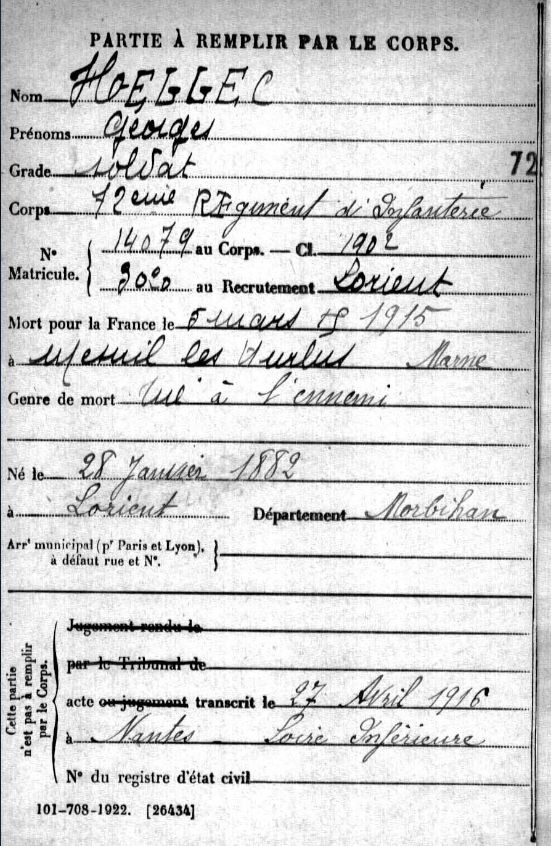 PARTIE À REMPLIR PAR LE CORPS.
Nom HOEGGEC
Prénoms Georges
Grade soldat
72
Corps 72eme Régiment d'Infanterie
N° Matricule. { 14079 au Corps. — Cl. 1902
au Recrutement Lorient
Mort pour la France le 5 mars 1915
à Mesnil les Hurlus Marne
Genre de mort Tué à l'ennemi
Né le 28 Janvier 1882
à Lorient Département Morbihan
Arrt municipal (pr Paris et Lyon), à défaut rue et N°. }
Cette partie n'est pas à remplir par le Corps. {
Jugement rendu le
par le Tribunal de
acte ou jugement transcrit le 27 Avril 1916
à Nantes - Loire Inférieure
N° du registre d'état civil
101-708-1922. [26434]